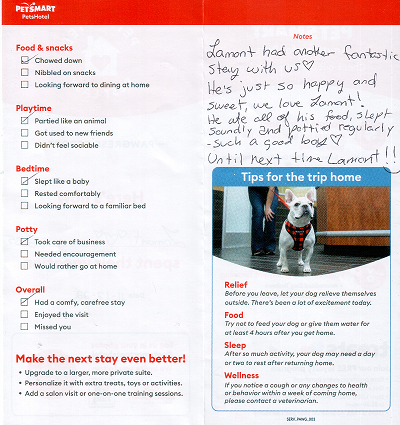 PETSMART
PetsHotel
Food & snacks
Chowed down
Nibbled on snacks
Looking forward to dining at home
Playtime
Partied like an animal
Got used to new friends
Didn't feel sociable
Bedtime
Slept like a baby
Rested comfortably
Looking forward to a familiar bed
Potty
Took care of business
Needed encouragement
Would rather go at home
Overall
Had a comfy, carefree stay
Enjoyed the visit
Missed you
Make the next stay even better!
• Upgrade to a larger, more private suite.
• Personalize it with extra treats, toys or activities.
• Add a salon visit or one-on-one training sessions.
Notes
Lamont had another fantastic
stay with us♡
He's just so happy and
sweet, we love Lamont!
He ate all of his food, slept
soundly and pottied regularly
-such a good boy♡
Until next time Lamont!!
Tips for the trip home
Relief
Before you leave, let your dog relieve themselves
outside. There's been a lot of excitement today.
Food
Try not to feed your dog or give them water for
at least 4 hours after you get home.
Sleep
After so much activity, your dog may need a day
or two to rest after returning home.
Wellness
If you notice a cough or any changes to health
or behavior within a week of coming home,
please contact a veterinarian.